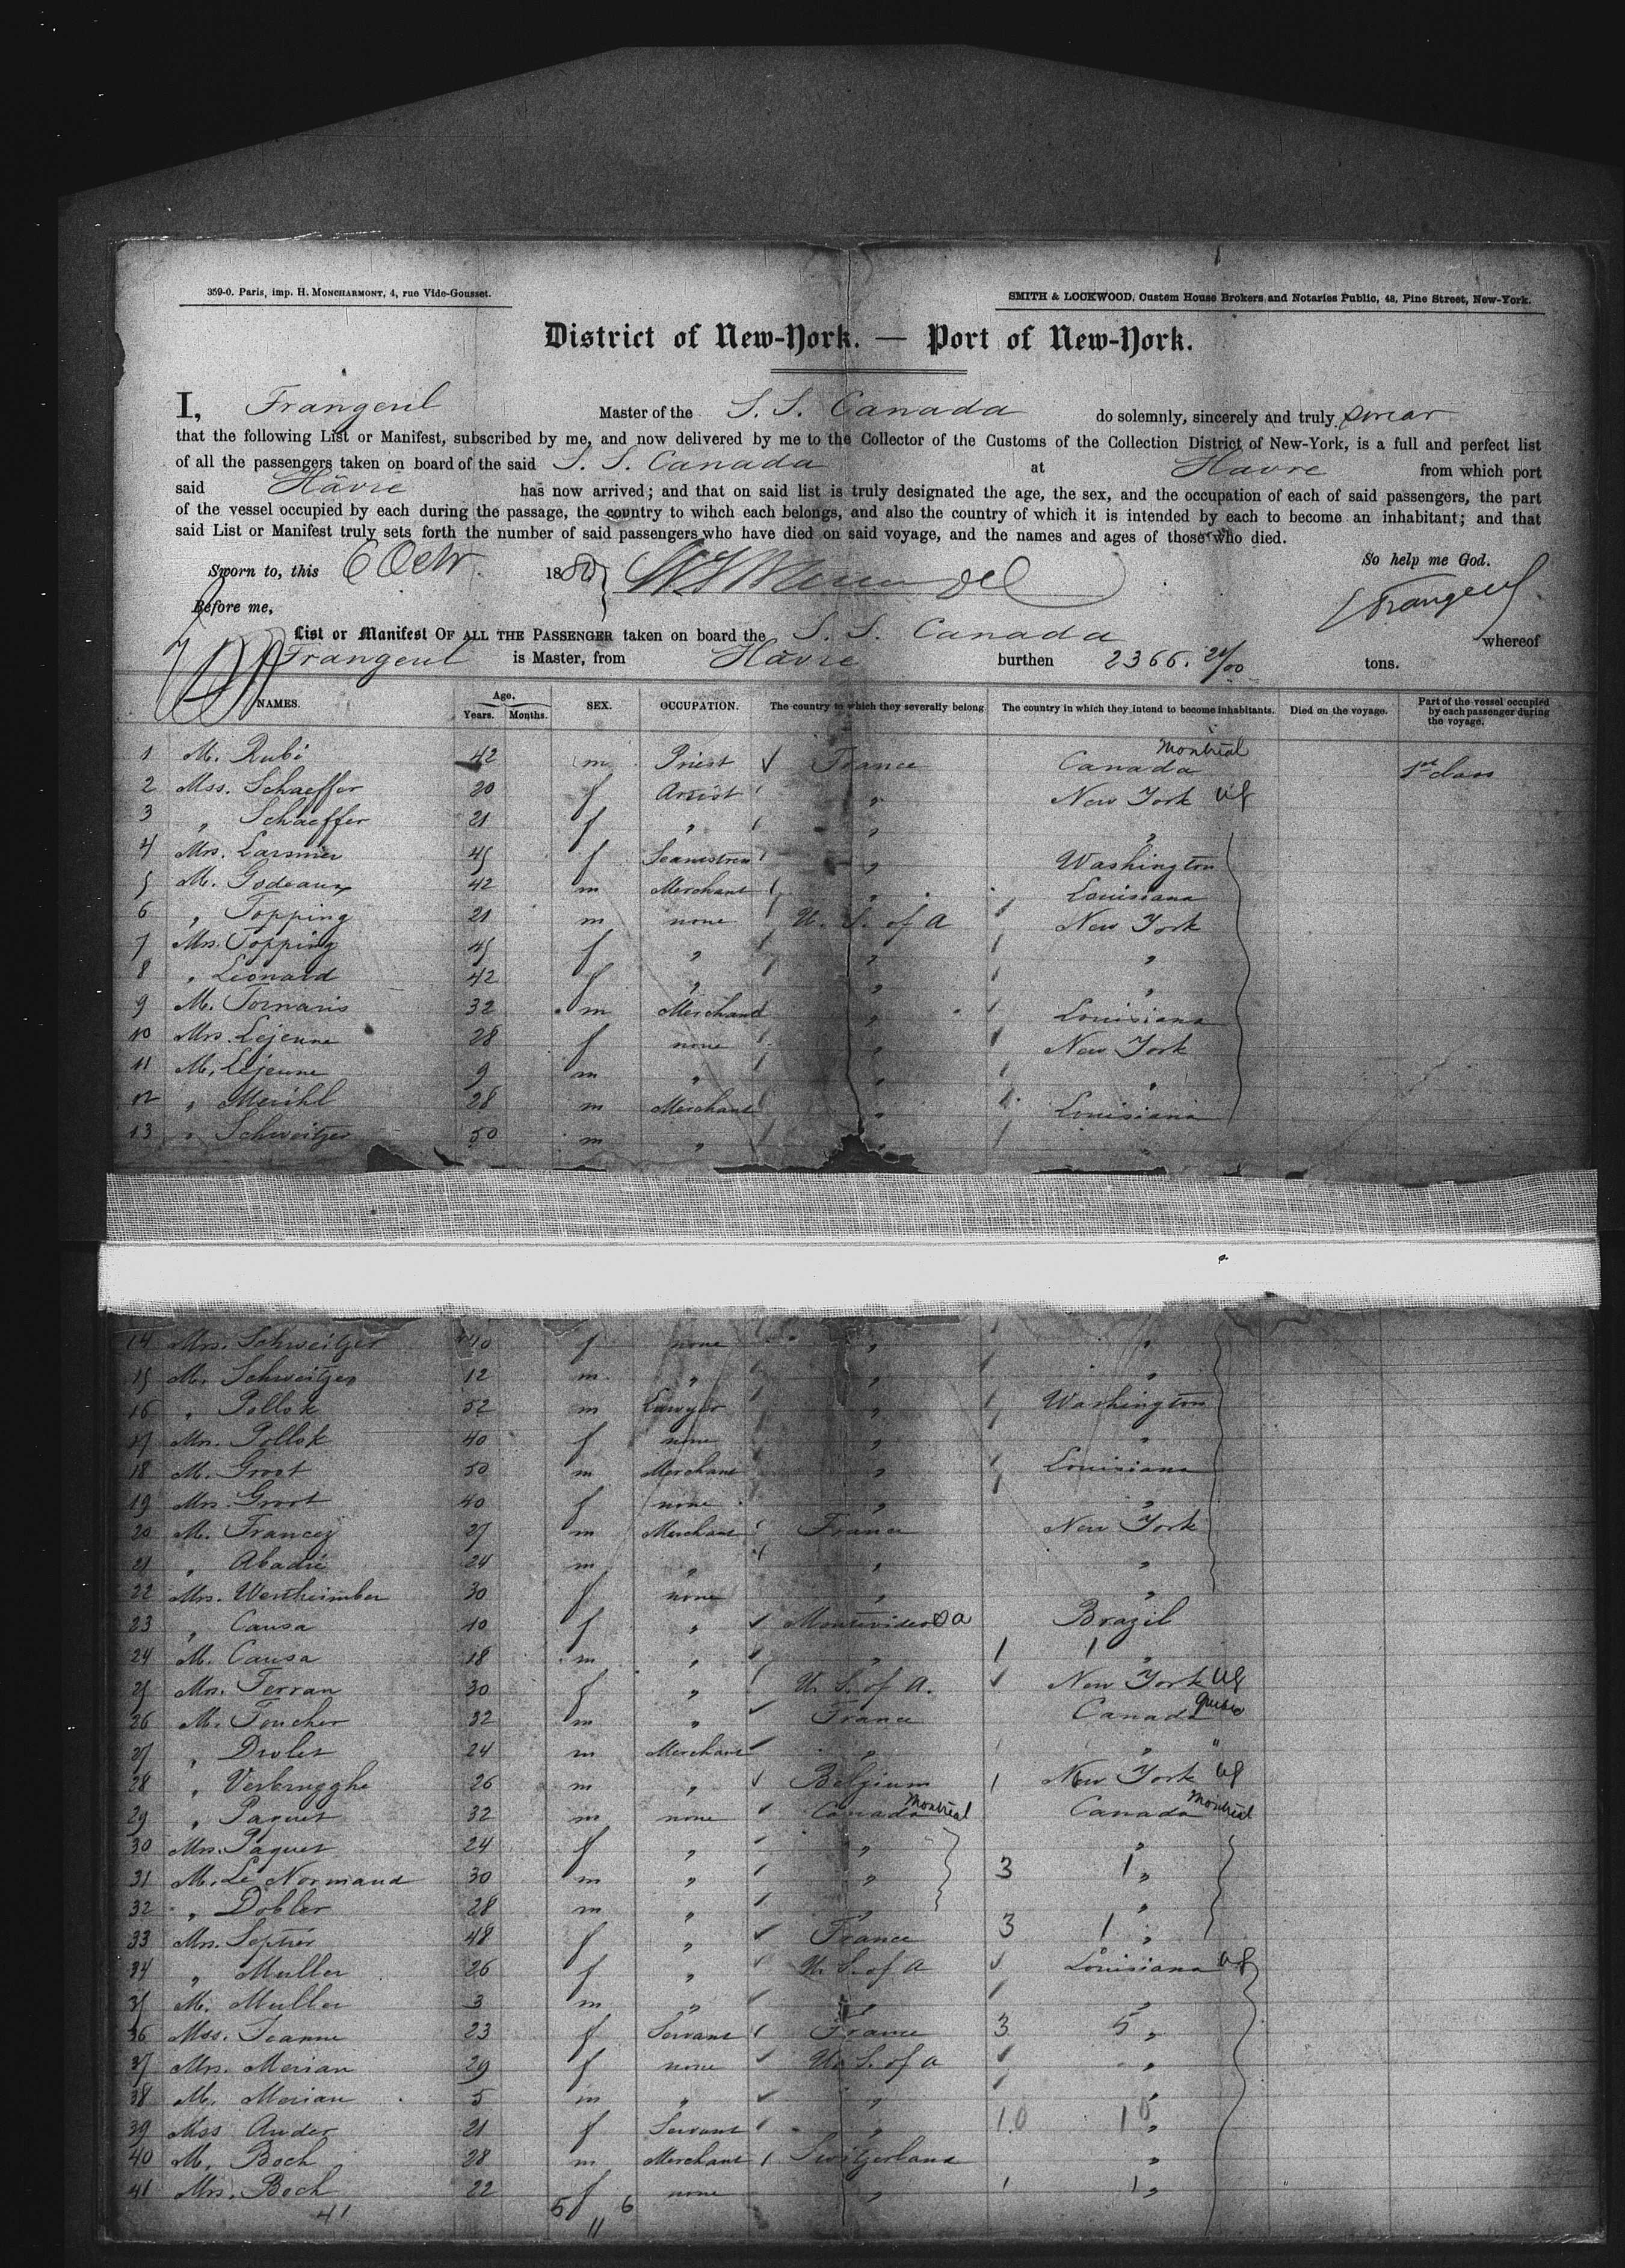 359-0. Paris, imp. H. MONCHARMONT, 4, rue Vide-Gousset.
SMITH & LOCKWOOD, Custom House Brokers and Notaries Public, 48, Pine Street, New-York.
District of New-York. — Port of New-York.
I, Frangeul Master of the S. S. Canada do solemnly, sincerely and truly swear
that the following List or Manifest, subscribed by me, and now delivered by me to the Collector of the Customs of the Collection District of New-York, is a full and perfect list
of all the passengers taken on board of the said S. S. Canada at Havre from which port
said Hâvre has now arrived; and that on said list is truly designated the age, the sex, and the occupation of each of said passengers, the part
of the vessel occupied by each during the passage, the country to wihch each belongs, and also the country of which it is intended by each to become an inhabitant; and that
said List or Manifest truly sets forth the number of said passengers who have died on said voyage, and the names and ages of those who died.
Sworn to, this 6 Octr. 1880 So help me God.
Before me, Frangeul
List or Manifest OF ALL THE PASSENGER taken on board the S. S. Canada whereof
Frangeul is Master, from Hâvre burthen 2366. 24/00 tons.
NAMES. Age. Years. Months. SEX. OCCUPATION. The country to which they severally belong The country in which they intend to become inhabitants. Died on the voyage. Part of the vessel occupied by each passenger during the voyage.
1 M. Rubi 42 m Priest France Canada Montreal 1st class
2 Mss. Schaeffer 20 f Artist " New York US
3 " Schaeffer 21 f " " "
4 Mrs. Larsmier 45 f Seamstress " Washington
5 M. Godeaux 42 m Merchant " Louisiana
6 " Topping 21 m none U. S. of A New York
7 Mrs. Topping 45 f " " "
8 " Léonard 42 f " " "
9 M. Tornaris 32 m Merchant " Louisiana
10 Mrs. Lejeune 28 f none " New York
11 M. Lejeune 9 m " " "
12 " Meuhl 28 m Merchant " Louisiana
13 " Schweitzer 50 m " "
14 Mrs. Schweitzer 40 f none " "
15 M. Schweitzer 12 m " " "
16 " Pollok 52 m Lawyer " Washington
17 Mrs. Pollok 40 f none " "
18 M. Groot 50 m Merchant " Louisiana
19 Mrs. Groot 40 f none " "
20 M. Francez 27 m Merchant France New York
21 " Abadie 24 m " " "
22 Mrs. Wertheimber 30 f none " "
23 " Causa 40 f " Montevideo SA Brazil
24 M. Causa 18 m " " 1 1 "
25 Mrs. Ferran 30 f " U. S. of A. New York US
26 M. Foucher 32 m " France Canada Quebec
27 " Drolet 24 m Merchant " " "
28 " Verbrugghe 26 m " Belgium 1 New York US
29 " Paquet 32 m none Canada Montreal Canada Montreal
30 Mrs. Paquet 24 f " " "
31 M. Le Normand 30 m " " 3 1 "
32 " Dobler 28 m " " "
33 Mrs. Septier 48 f " France 3 1 "
34 " Muller 26 f " U. S. of A Louisiana US
35 M. Muller 3 m " " "
36 Mss. Jeanne 23 f Servant France 3 5 "
37 Mrs. Merian 29 f none U. S. of A "
38 M. Merian 5 m " " "
39 Mss Ander 21 f Servant " 10 10 "
40 M. Boch 28 m Merchant Switzerland "
41 Mrs. Boch 22 f none " 1 1 "
41 5 6
11